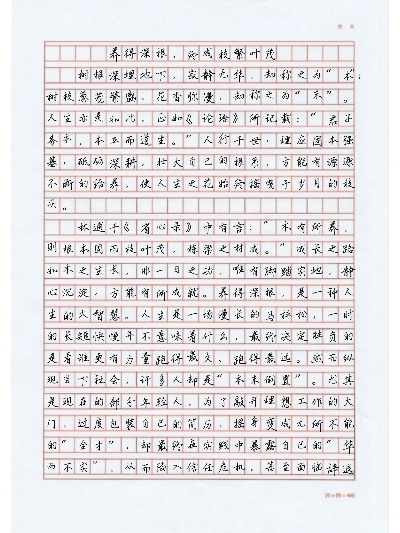 养得深根，终成枝繁叶茂
树根深埋地下，寂静无华，却称之为“本”
树枝葱茏繁盛，花香弥漫，却称之为“末”。
人生亦是如此，正如《论语》所记载：“君子
务本，本立而道生。”人行于世，理应固本强
基，砥砺深耕，壮大自己的根系，方能有源源
不断的给养，使人生之花始终摇曳于岁月的枝
头。
林逋于《省心录》中有言：“本有所养，
则根本固而枝叶茂，栋梁之材成。”成长之路
如木之生长，非一日之功，唯有脚踏实地，静
心沉淀，方能有所成就。养得深根，是一种人
生的大智慧。人生是一场漫长的马拉松，一时
的长短快慢并不意味着什么，最终决定胜负的
是看谁更有力量跑得最久、跑得最远。然而纵
观当下社会，许多人却是“本末倒置”。尤其
是现在的部分年轻人，为了敲开理想工作的大
门，过度包装自己的简历，摇身变成无所不能
的“全才”，却最终在实践中暴露自己的“华
而不实”，从而陷入信任危机，甚至面临辞退
20×20=400